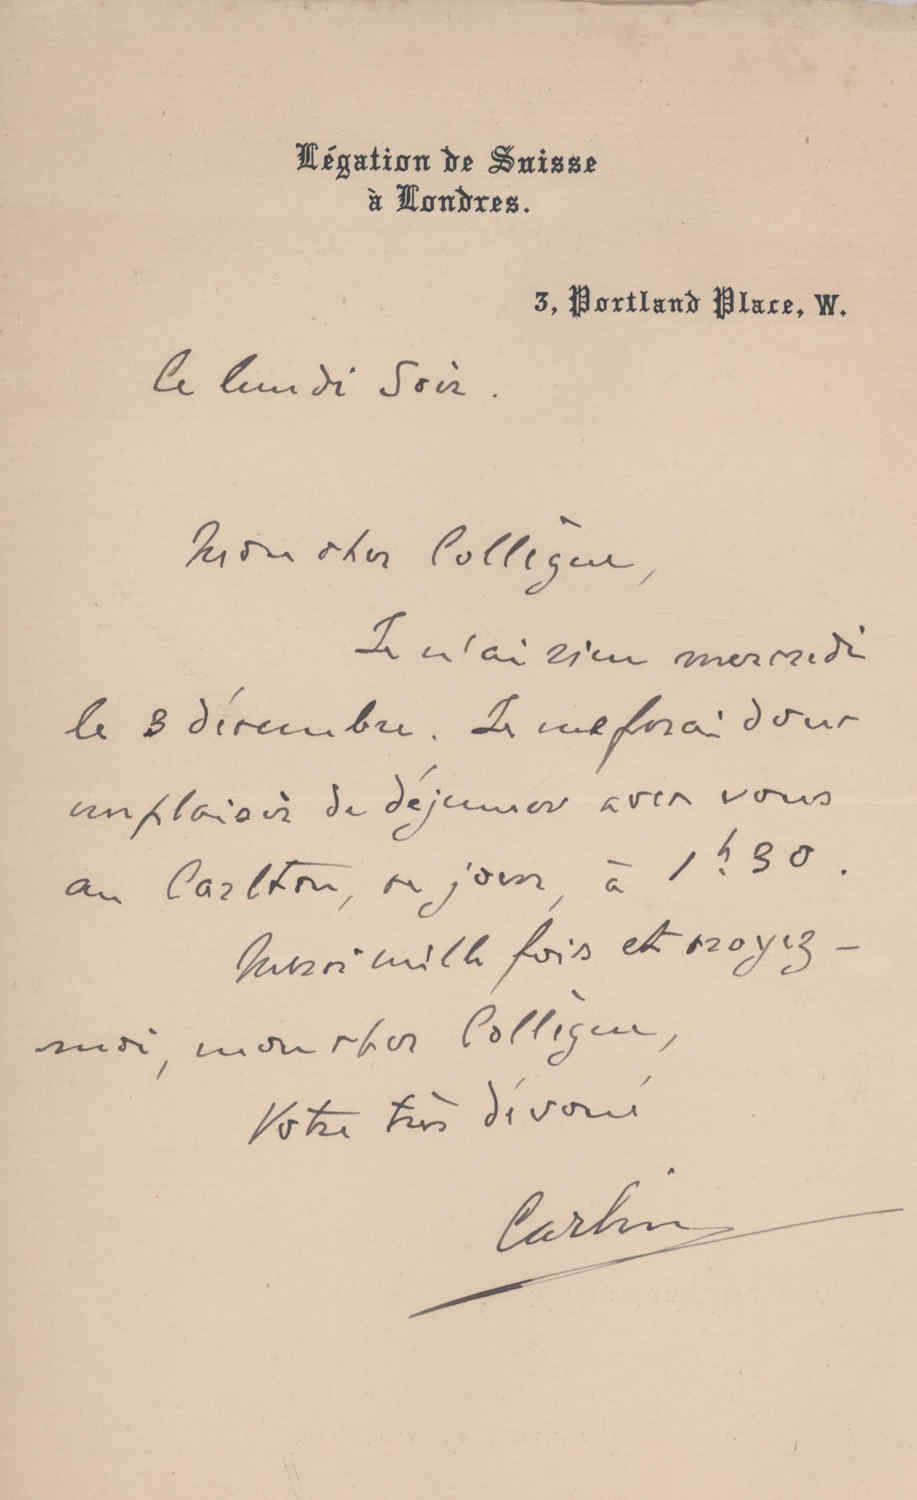 Légation de Suisse
à Londres.
3, Portland Place, W.
Ce lundi soir.
Mon cher Collègue,
Je n'ai rien mercredi
le 3 décembre. Je me ferai donc
un plaisir de déjeuner avec vous
au Carlton, ce jour, à 1h.30.
Merci mille fois et croyez-
moi, mon cher Collègue,
Votre très dévoué
Carlin